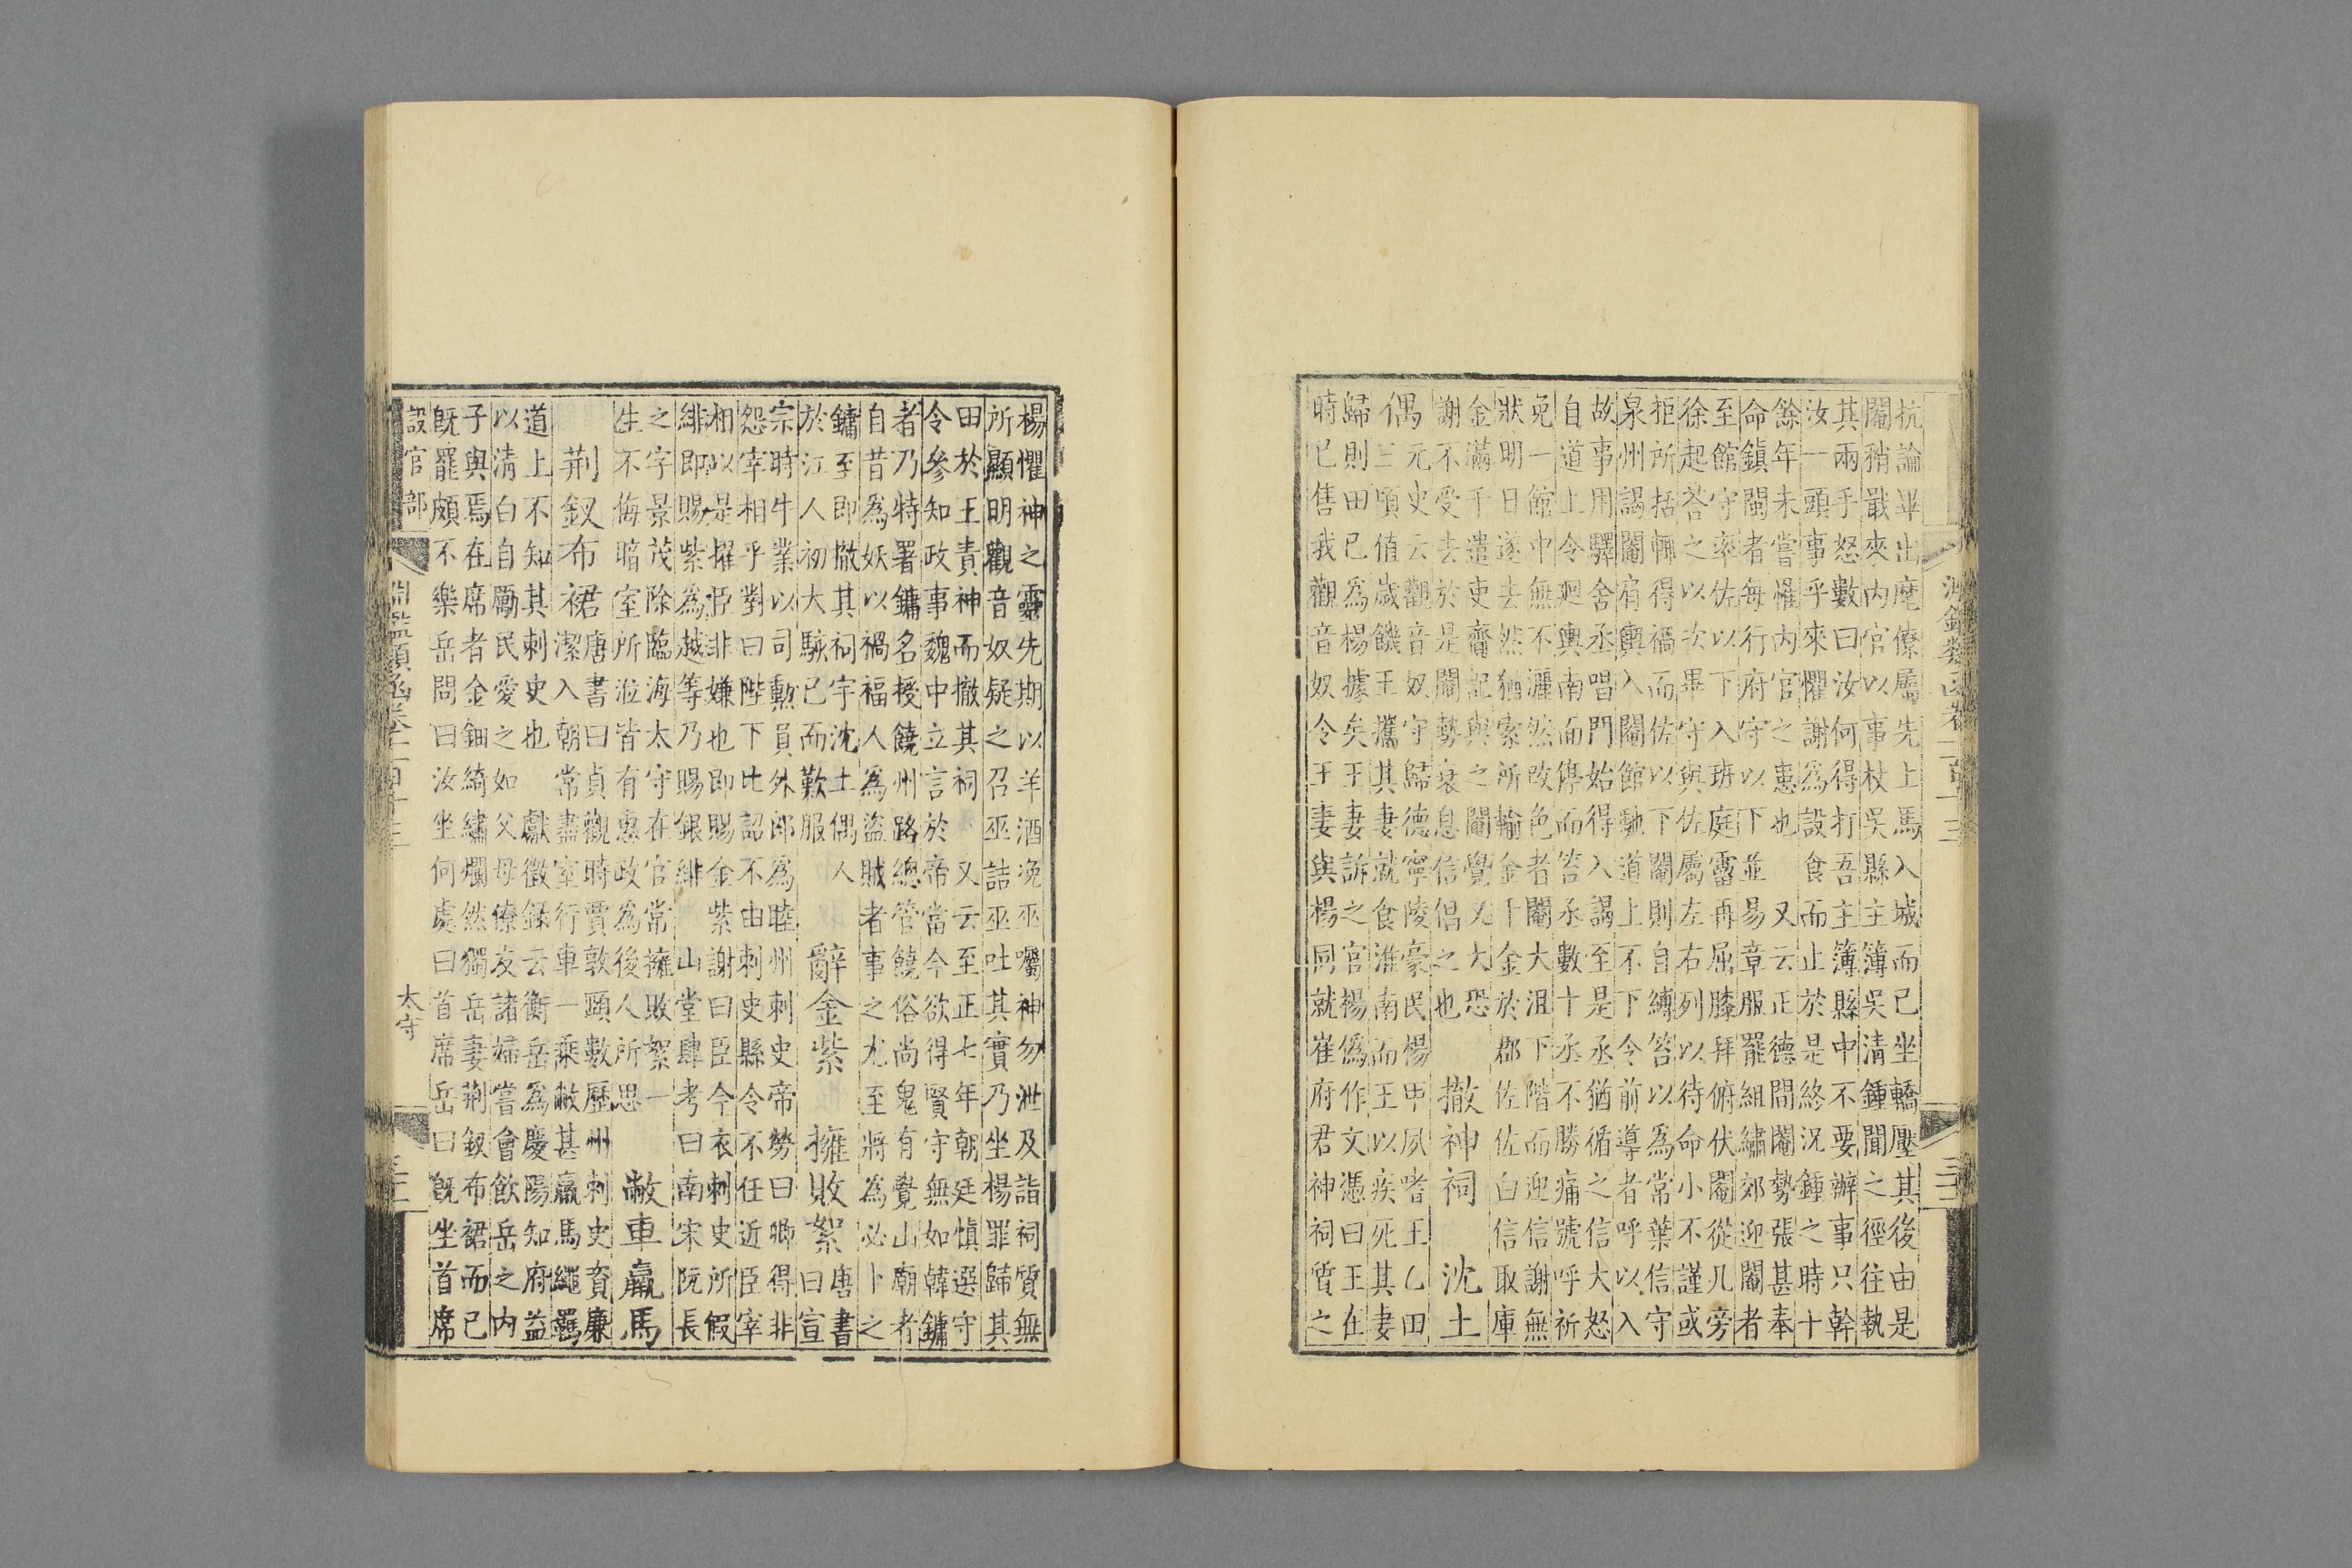 淵鑑類函卷一百十三
抗論畢出麾僚屬先上馬入城而已坐轎壓其後由是
閹稍戢來內官以事杖吳縣主簿吳清鍾聞之徑往執
其兩手怒數曰汝何得打吾主簿縣中不要辦事只幹
汝一頭事乎來懼謝為設食而止於是終況鍾之時十
餘年未嘗懼內官之患也　又云正德間閹勢張甚奉
命鎮閩者每行府守以下並易章服罷組繡郊迎閹者
至館守率佐以下入班庭霤再屈膝拜俯伏閹從几旁
徐起荅之以次畢守與佐屬左右列以待命小不謹或
拒所括輒得禍而佐以下閹則自縛笞以為常葉信守
泉州謁閹肩輿入閹館馳道上不下令前導者呼以入
故事用驛舍丞唱門始得入謁至是丞猶循之信大怒
自道上令廻輿南面停而笞丞數十丞不勝痛號呼祈
免一館中無不灑然改色者閹大沮下階而迎信謝無
狀明日遂去然猶索所輸金千金於郡佐佐白信取庫
金滿千遣吏齎記與之閹覺又大恐
謝不受去於是閹勢衰息信倡之也
撤神祠　沈土
偶
元史云觀音奴守歸德寧陵豪民楊甲夙嗜王乙田
三頃值歲饑王攜其妻就食淮南而王以疾死其妻
歸則田已為楊據矣王妻訴之官楊偽作文憑曰王在
時已售我觀音奴令王妻與楊同就崔府君神祠質之
楊懼神之靈先期以羊酒浼巫囑神勿泄及詣祠質無
所顯明觀音奴疑之召巫詰巫吐其實乃坐楊罪歸其
田於王責神而撤其祠　又云至正七年朝廷慎選守
令參知政事魏中立言於帝當今欲得賢守無如韓鏞
者乃特署鏞名授饒州路總管饒俗尚鬼有覺山廟者
自昔為妖以禍福人為盜賊者事之尤至將為必卜之
鏞至即撤其祠宇沈土偶人
於江人初大駭已而歎服
辭金紫　擁敗絮
唐書
曰宣
宗時牛業以司勳員外郎為睦州刺史帝勞曰卿得非
怨宰相乎對曰陛下比詔不由刺史縣令不任近臣宰
相以是擢臣非嫌也即賜金紫謝曰臣今衣刺史所假
緋即賜紫為越等乃賜銀緋　山堂肆考曰南宋阮長
之字景茂除臨海太守在官常擁敗絮一
生不侮暗室所涖皆有惠政為後人所思
敝車羸馬
荊釵布裙
唐書曰貞觀時賈敦頤數歷州刺史資廉
潔入朝常盡室行車一乘敝甚羸馬繩羈
道上不知其刺史也　獻徵錄云衡岳為慶陽知府益
以清白自勵民愛之如父母僚友諸婦嘗會飲岳之內
子與焉在席者金鈿綺繡爛然獨岳妻荊釵布裙而已
既罷頗不樂岳問曰汝坐何處曰首席岳曰既坐首席
設官部
淵鑑類函卷一百十三
太守